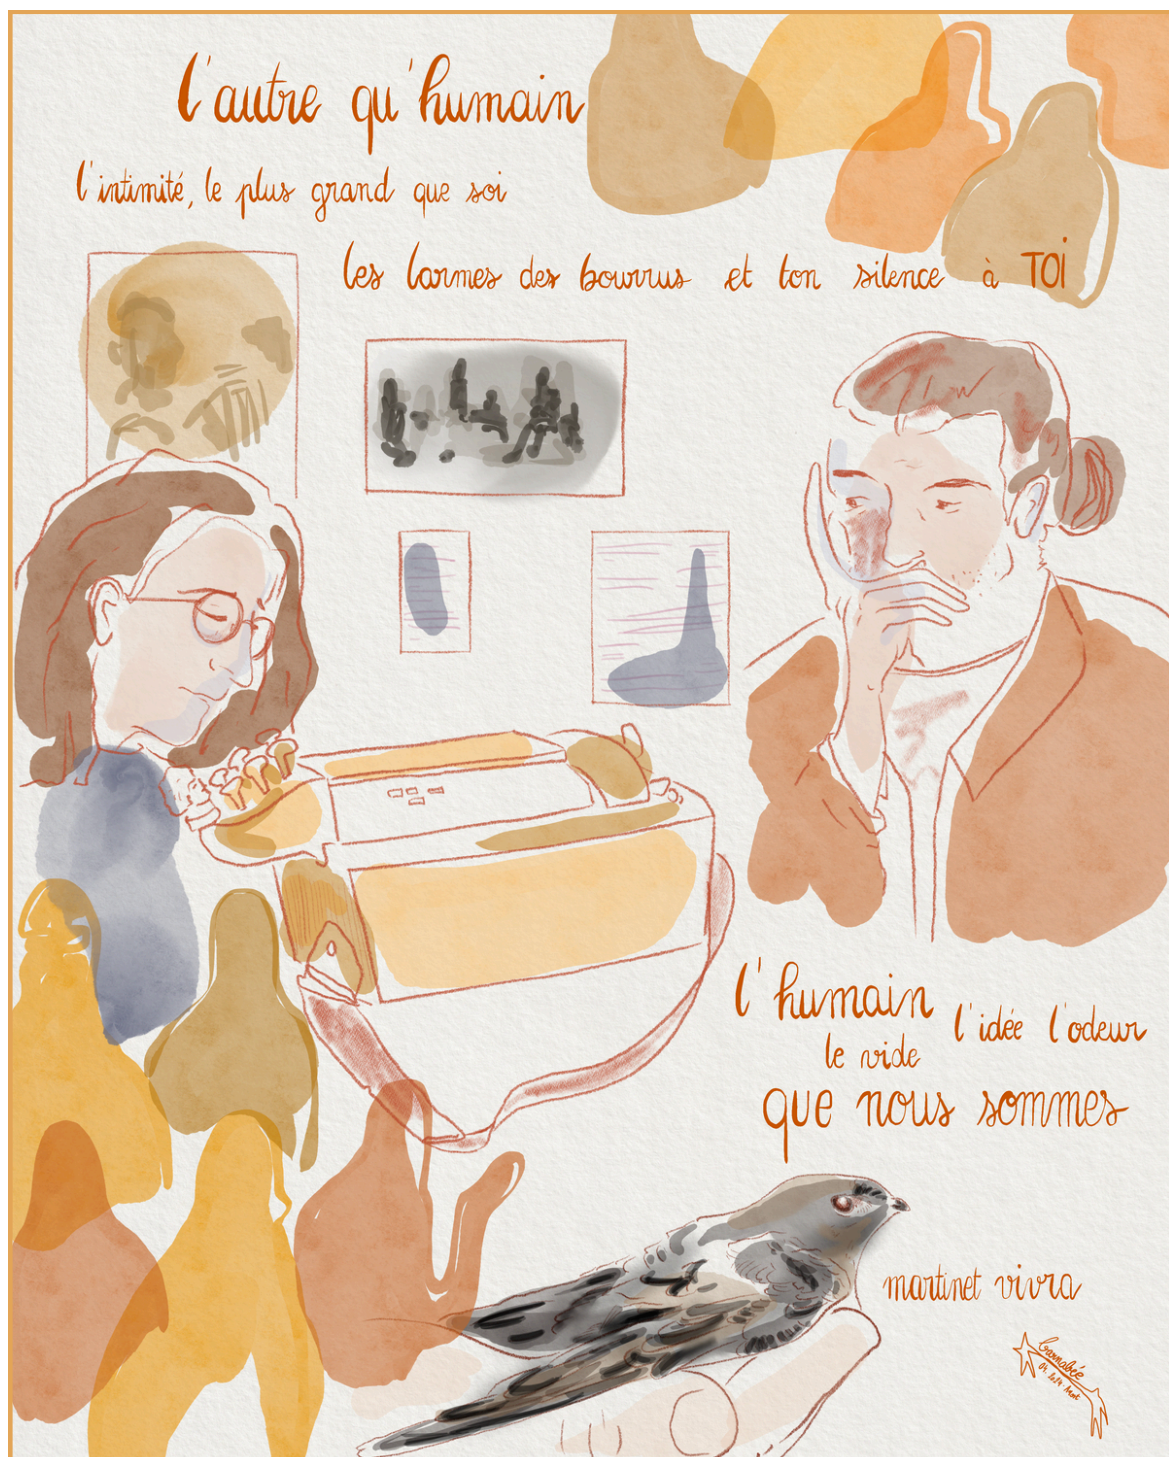 l'autre qu'humain
l'intimité, le plus grand que soi
les larmes des bourrus et ton silence à TOI
l'humain l'idée l'odeur
le vide
que nous sommes
martinet vivra
Barnabée